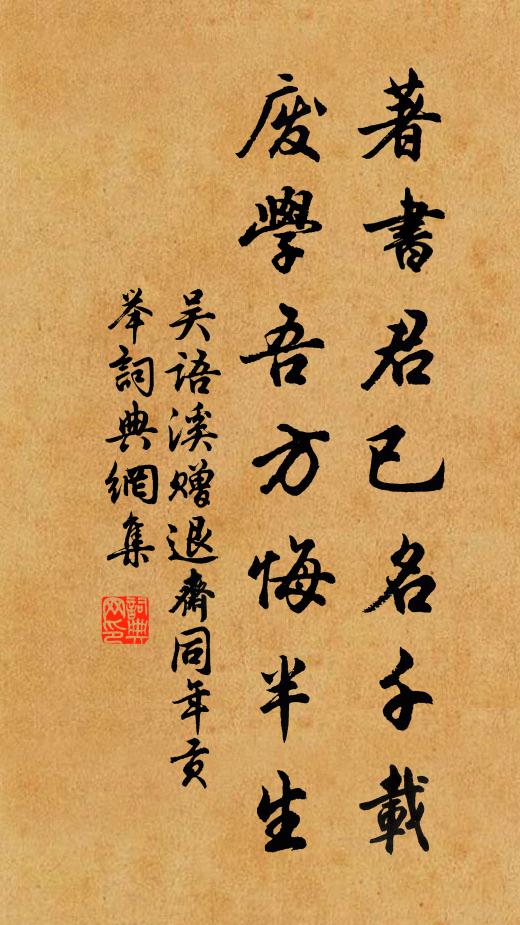 著書君已名千載
废學吾方悔半生
吴语溪赠退齋同年贡
举詞典網集
詞典網印